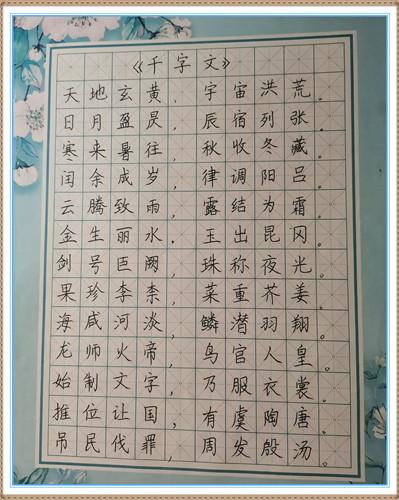 《千字文》
天地玄黄，宇宙洪荒。
日月盈昃，辰宿列张。
寒来暑往，秋收冬藏。
闰余成岁，律调阳吕。
云腾致雨，露结为霜。
金生丽水，玉出昆冈。
剑号巨阙，珠称夜光。
果珍李柰，菜重芥姜。
海咸河淡，鳞潜羽翔。
龙师火帝，鸟官人皇。
始制文字，乃服衣裳。
推位让国，有虞陶唐。
吊民伐罪，周发殷汤。